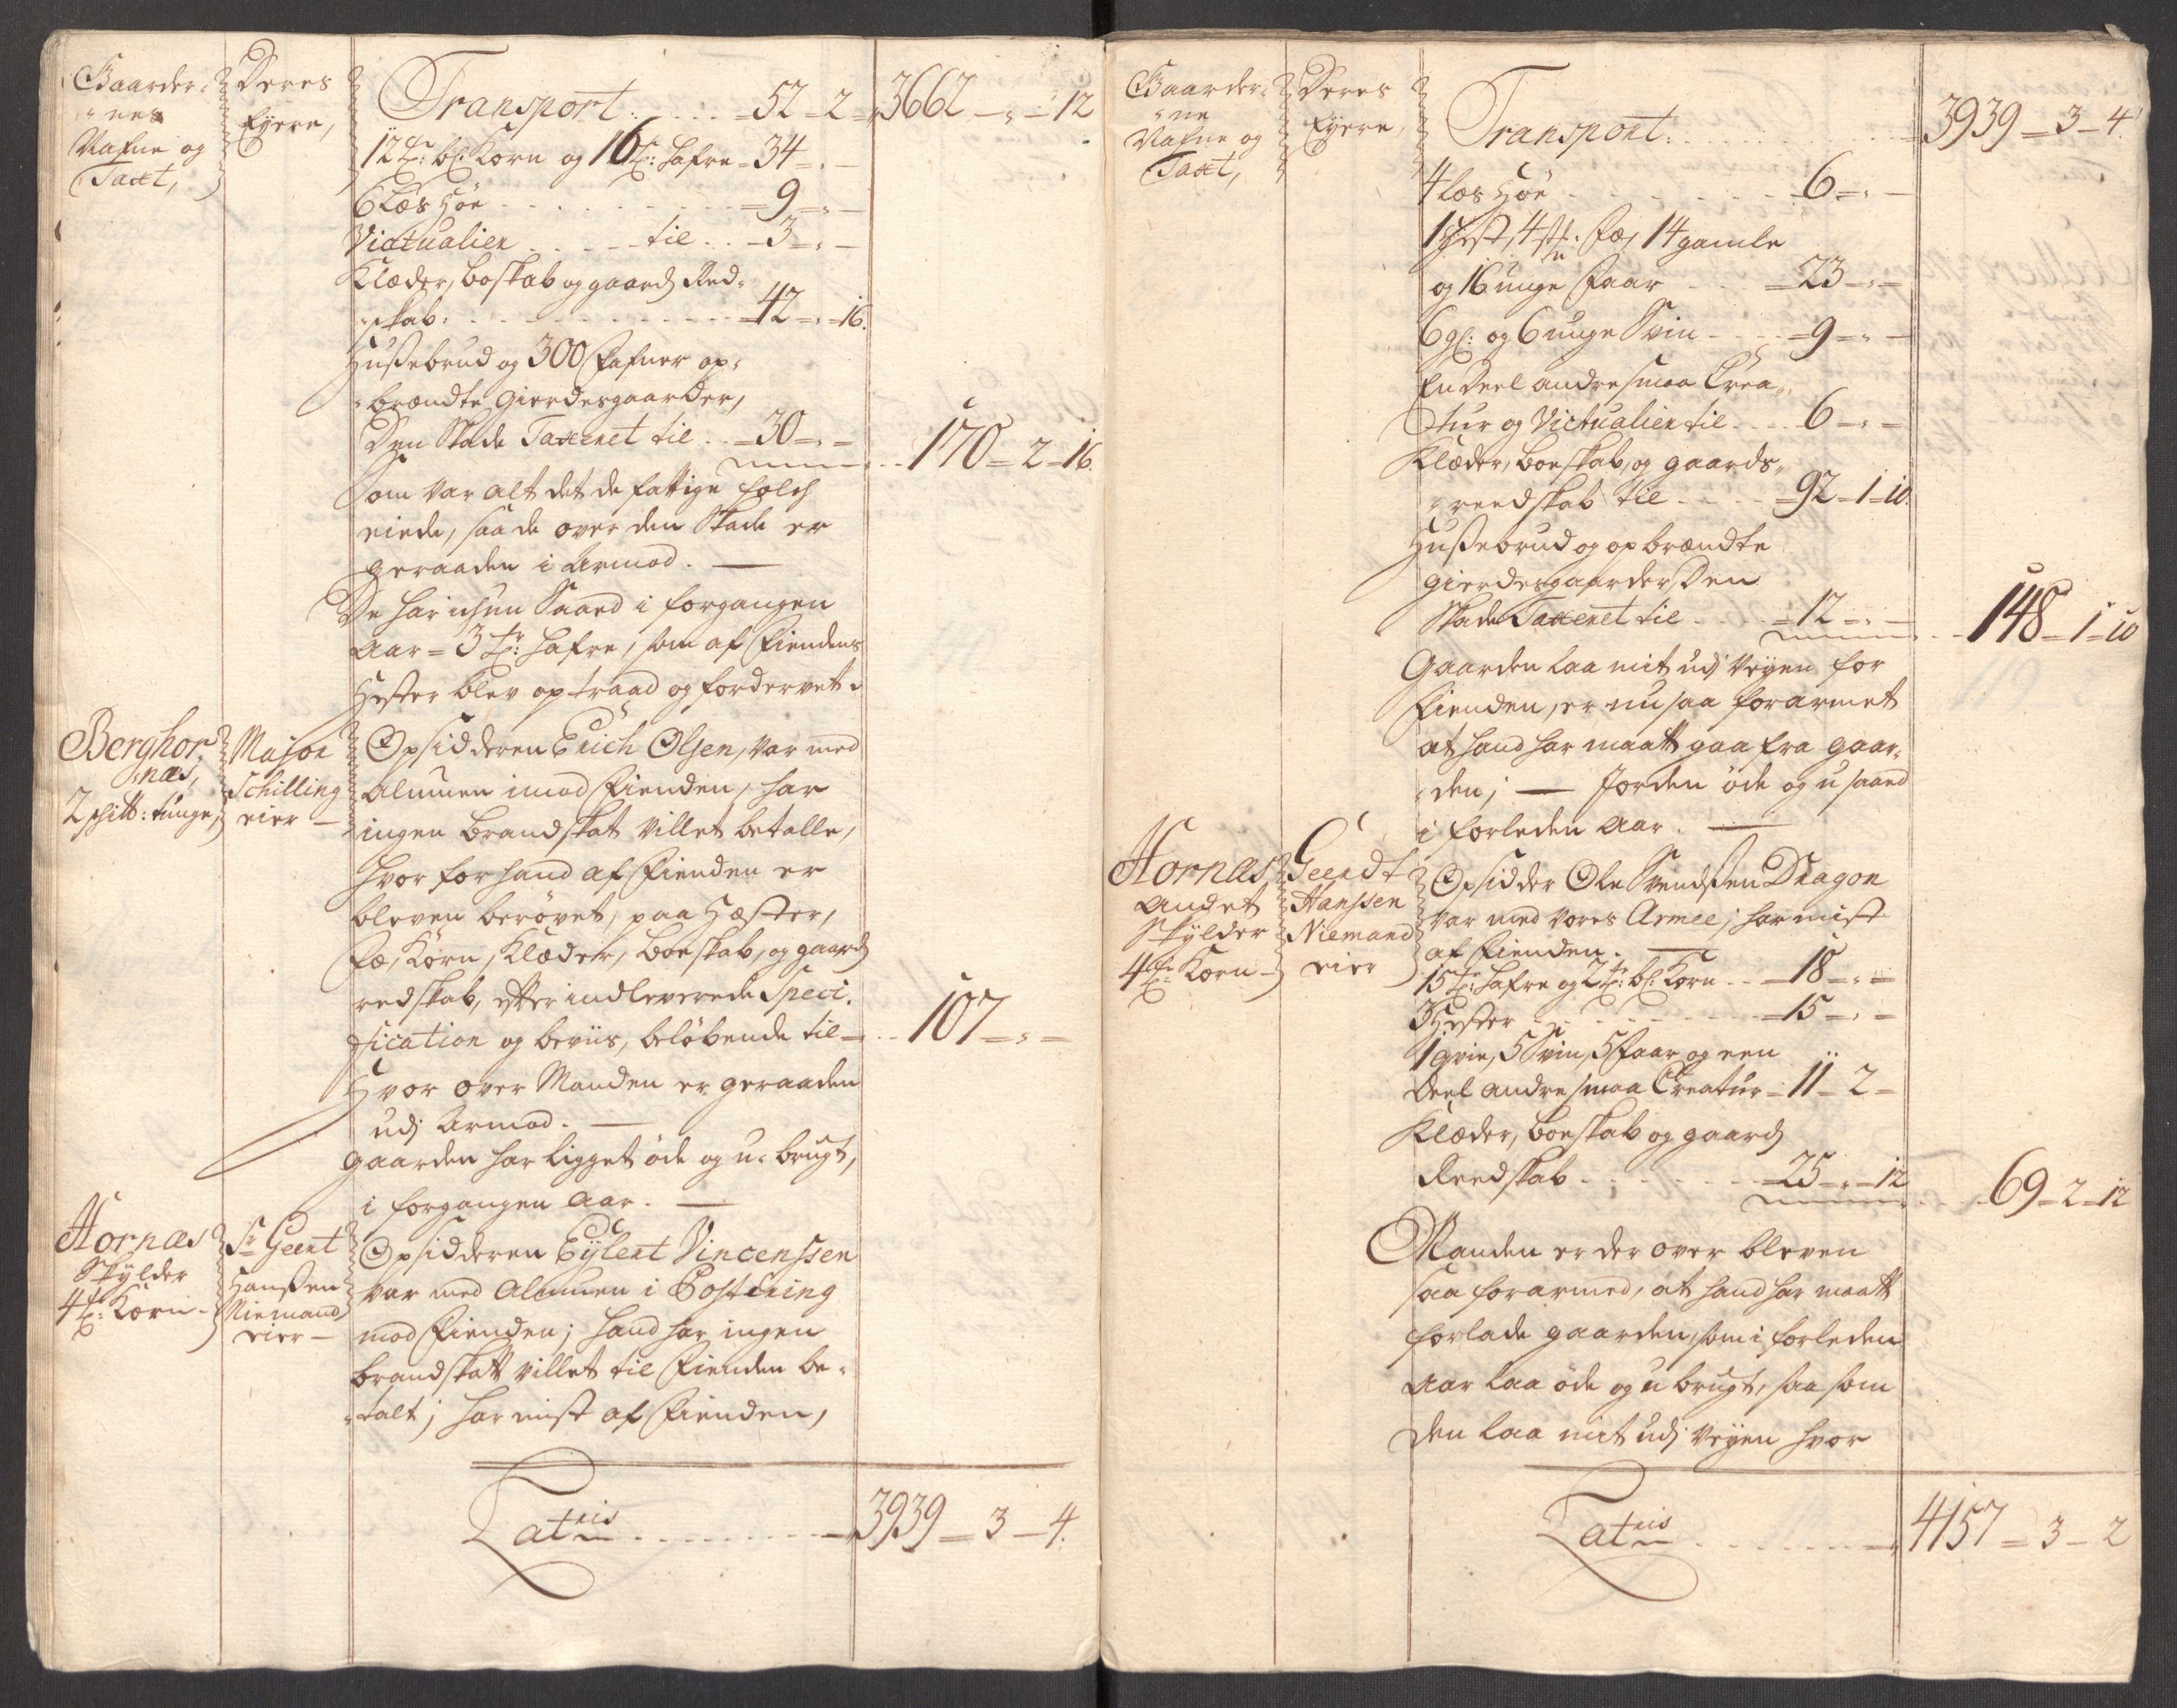 Gaarder-
nes
Nafne og
Taxt,
Deres
Eyere,
Transport. 52 - 2 - 3662 - " - 12
12 tr: bl: Korn og 16 tr: hafre - 34 - " -
6 læs Höe - 9 - " -
Victualier til - 3 - " -
Klæder, boskab og gaards Red-
skab: - 42 - " - 16.
Hussebrud og 300 fafner op-
brændte gierdesgaarder,
Den Skade Taxeret til - 30 - " - 170 - 2 - 16.
Som var alt det de fattige folch
eiede, saa de over den Skade er
geraaden i Armod. —
De har ichun Saaed i forgangen
Aar - 3 tr: hafre, som af Fiendens
Hester blev optraad og fordervet.
Berghor-
næs,
2 schill: tunge,
Major
Schilling
eier —
Opsidderen Erich Olsen, var med
Almuen imod Fienden, har
ingen brandskat villet betalle,
hvor for hand af Fienden er
bleven berövet, paa Hæster,
fæ, Korn, Klæder, boeskab, og gaards
redskab, efter indleverede Speci-
fication og beviis, belöbende til - 107 - " -
Hvor over Manden er geraaden
udj Armod. —
gaarden har ligget öde og u-brugt,
i forgangen Aar. —
Hornæs
Skylder
4 tr: Korn -
Sr Geert
Hanssen
Niemand
eier —
Opsidderen Eÿlert Vincenssen
var med Almuen i Postering
mod Fienden; hand har ingen
brandskatt villet til Fienden be-
talt; har mist af Fienden,
Lateris - 3939 - 3 - 4.
Gaarder-
ne
Nafne og
Taxt,
Deres
Eyere,
Transport. 3939 - 3 - 4.
4 los Höe - 6 - " -
1 Hest, 4 st: fæ, 14 gamle
og 16 unge Faar - 23 - " -
6 gl: og 6 unge Svin - 9 - " -
En deel andre smaa Crea-
tur og Victualier til - 6 - " -
Klæder, boeskab, og gaards-
reedskab til - 92 - 1 - 10.
Hussebrud og op brændte
gierdesgaarder Den
Skade Taxeret til - 12 - " - 148 - 1 - 10
Gaarden laa mit udj Veyen for
Fienden, er nu saa forarmet
at hand har maatt gaa fra gaar-
den; — Jorden öde og usaaed
i forleden Aar. —
Hornæs
Andet
Skylder
4 tr: Korn -
Geerdt
Hanssen
Niemand
eier
Opsidder Ole Svendssen Dragon
var med vores Armee; har mist
af Fienden. —
15 tr: hafre og 2 tr: bl: Korn - 18 - " -
3 Hester - 15 - " -
1 qvie, 5 Svin, 5 Faar og een
Deel andre smaa Creatur - 11 - 2 -
Klæder, boeskab og gaards
Reedskab - 25 - " - 12 69 - 2 - 12
Manden er der over bleven
saa forarmed, at hand har maatt
forlade gaarden, som i forleden
Aar laa öde og u brugt, saa som
den laa mit udj Veyen hvor
Lateris - 4157 - 3 - 2